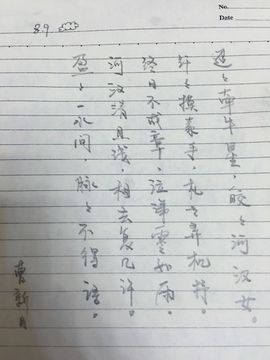 No.
Date
8.9
迢々牵牛星,皎々河汉女。
纤々擢素手,札々弄机杼。
终日不成章,泣涕零如雨。
河汉清且浅,相去复几许。
盈々一水间,脉々不得语。
曹新月